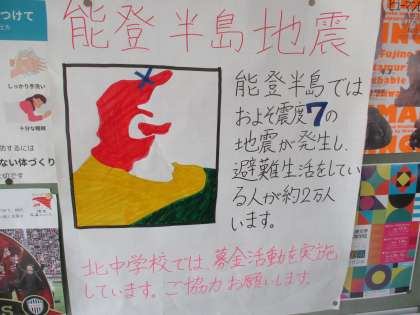 能登半島地震
能登半島では
およそ震度7の
地震が発生し、
避難生活をしてい
る人が約2万人
います。
北中学校では募金活動を実施
しています。ご協力お願いします。
つけて
しっかり手洗い
十分な睡眠
防するには
ない体づくり
大切です